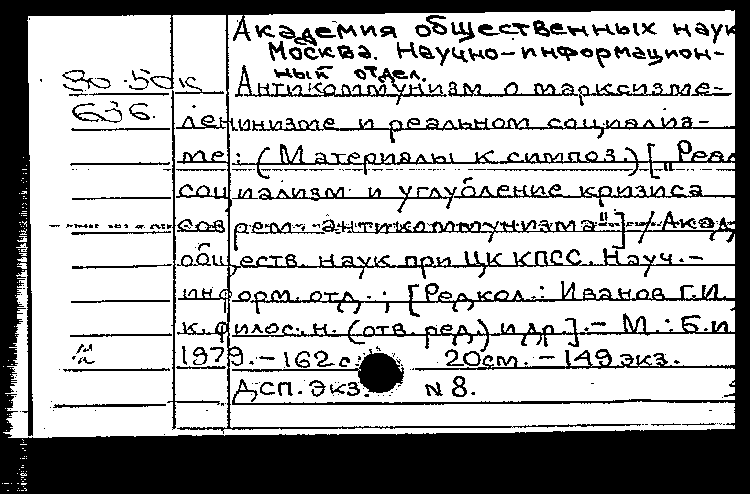 Академия общественных наук
Москва. Научно-информацион-
ный отдел.
80-50к Антикоммунизм о марксизме-
636. ленинизме и реальном социализ-
ме: (Материалы к симпоз.) ["Реал
социализм и углубление кризиса
соврем. антикоммунизма"] / Акад.
обществ. наук при ЦК КПСС. Науч.-
информ. отд.; [Редкол.: Иванов Г.И.
к. филос. н. (отв. ред.) и др.]. - М.: Б.и
1979. - 162 с 20 см. - 149 экз.
ДСП. Экз. N 8.